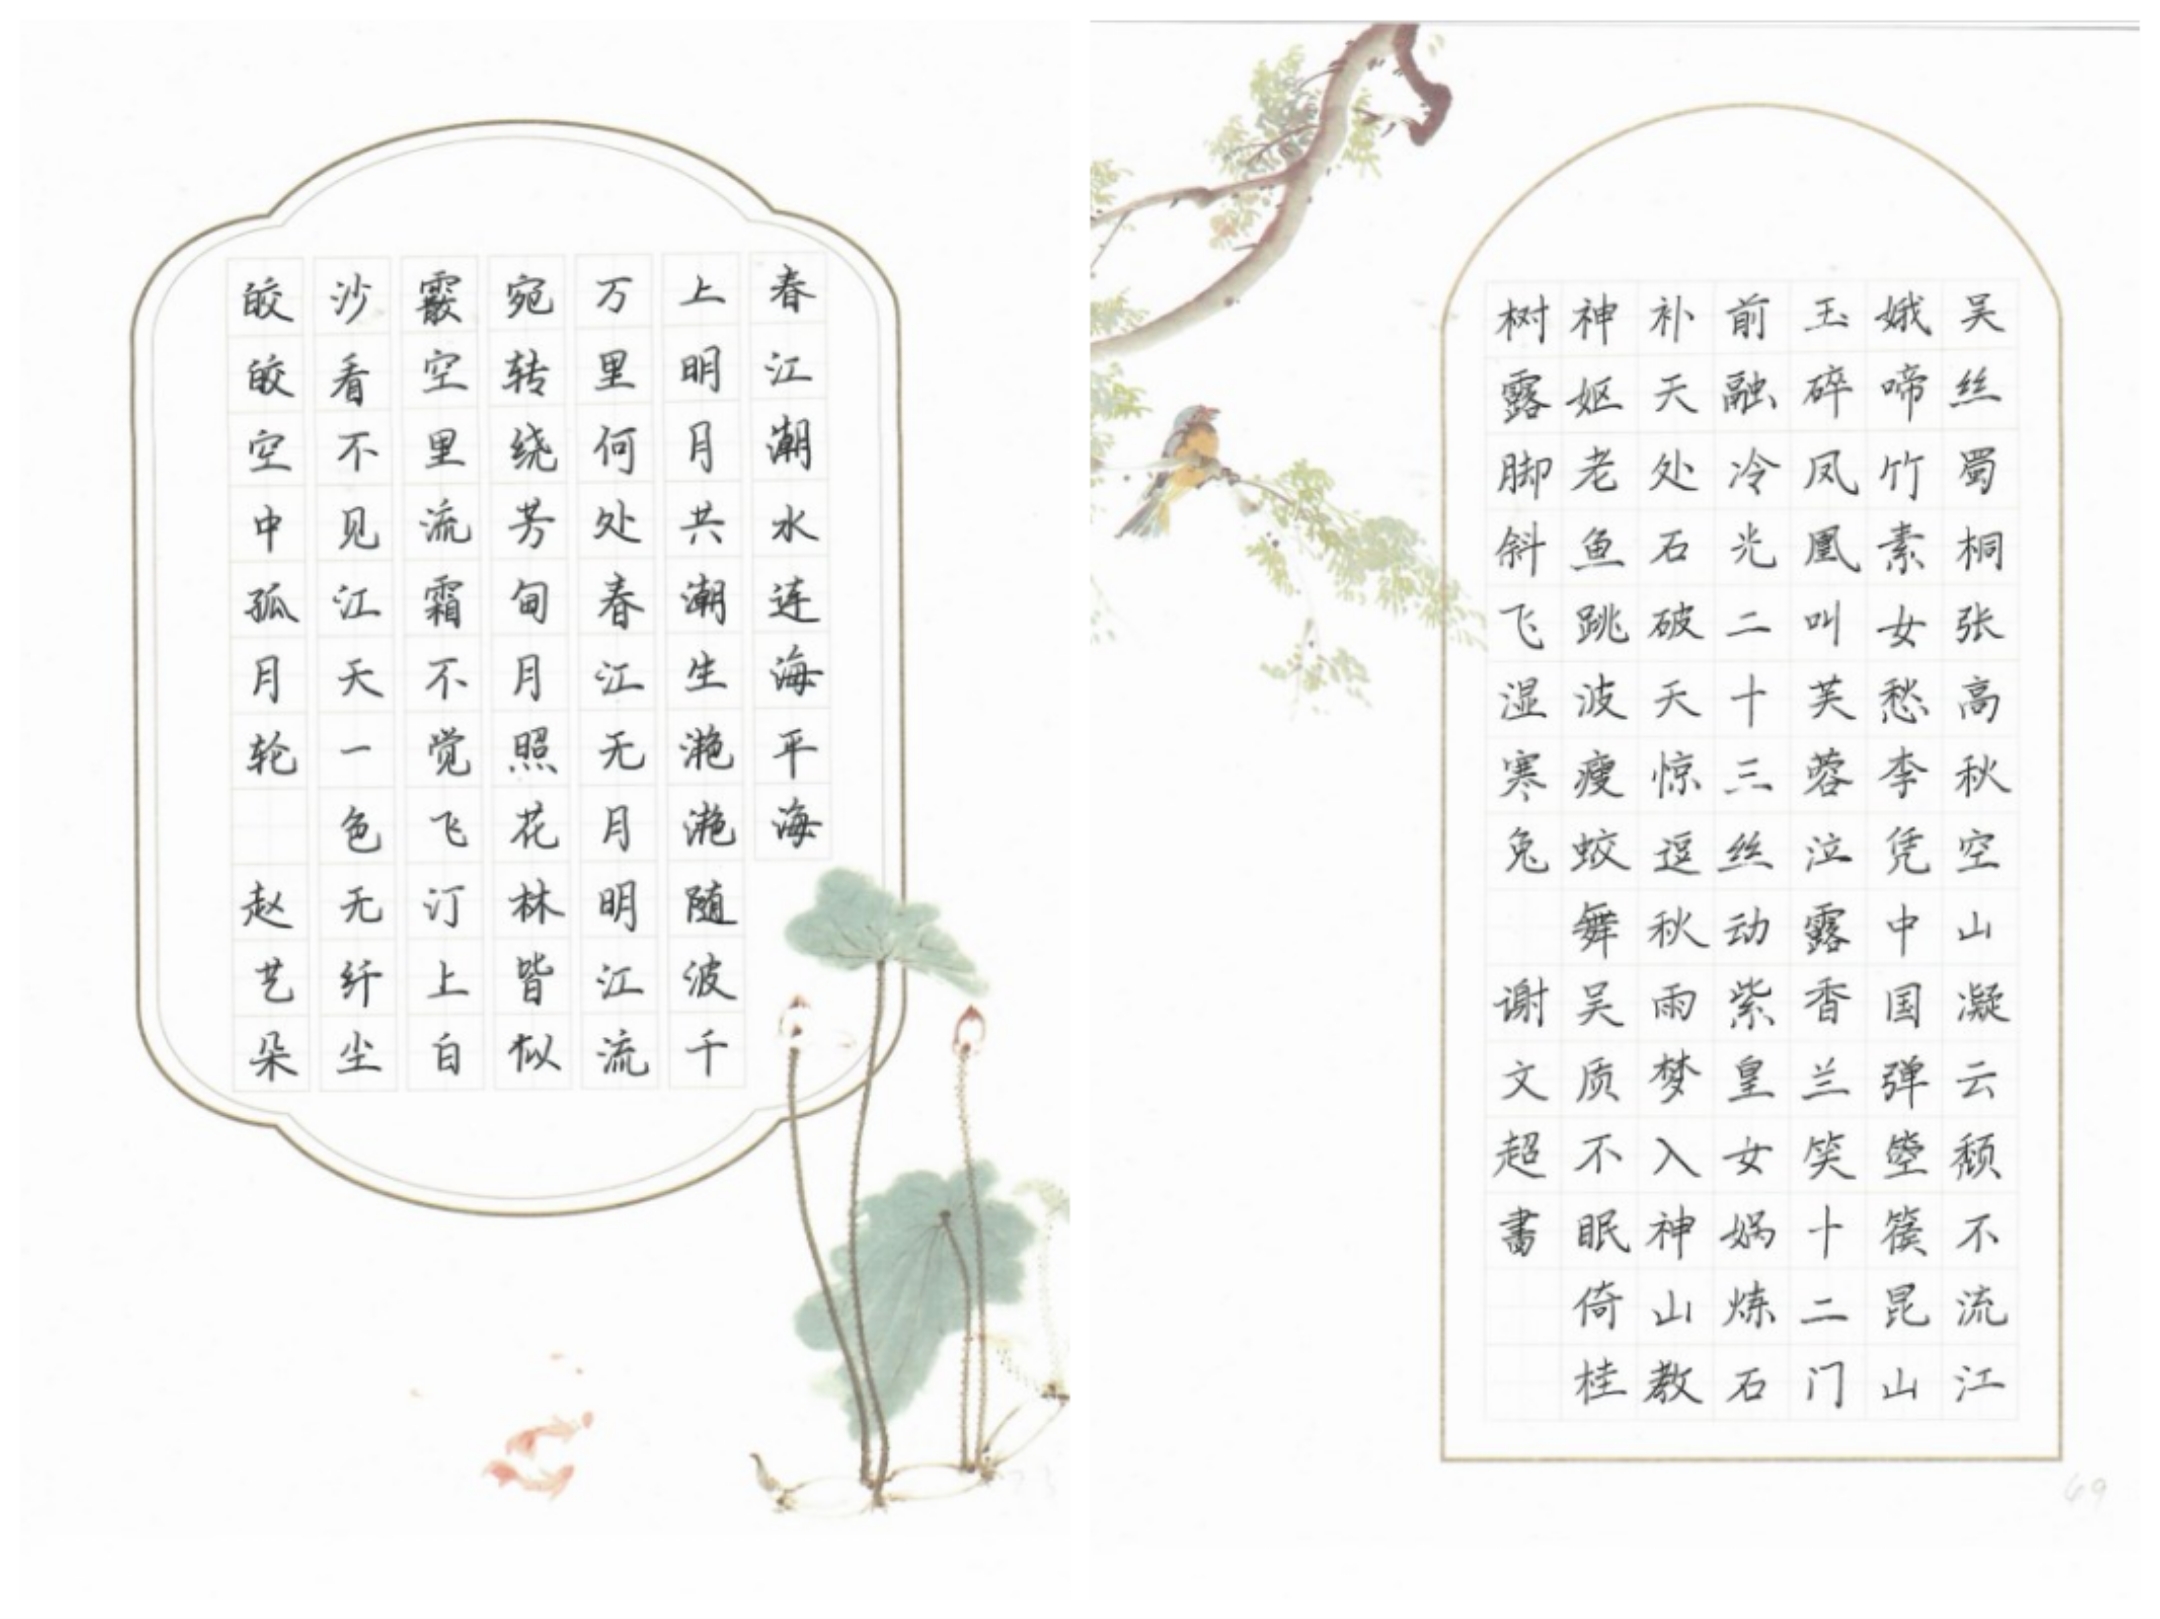 春江潮水连海平海
上明月共潮生滟滟随波千
万里何处春江无月明江流
宛转绕芳甸月照花林皆似
霰空里流霜不觉飞汀上白
沙看不见江天一色无纤尘
皎皎空中孤月轮 赵艺朵
吴丝蜀桐张高秋空山凝云颓不流江
娥啼竹素女愁李凭中国弹箜篌昆山
玉碎凤凰叫芙蓉泣露香兰笑十二门
前融冷光二十三丝动紫皇女娲炼石
补天处石破天惊逗秋雨梦入神山教
神妪老鱼跳波瘦蛟舞吴质不眠倚桂
树露脚斜飞湿寒兔 谢文超書
69